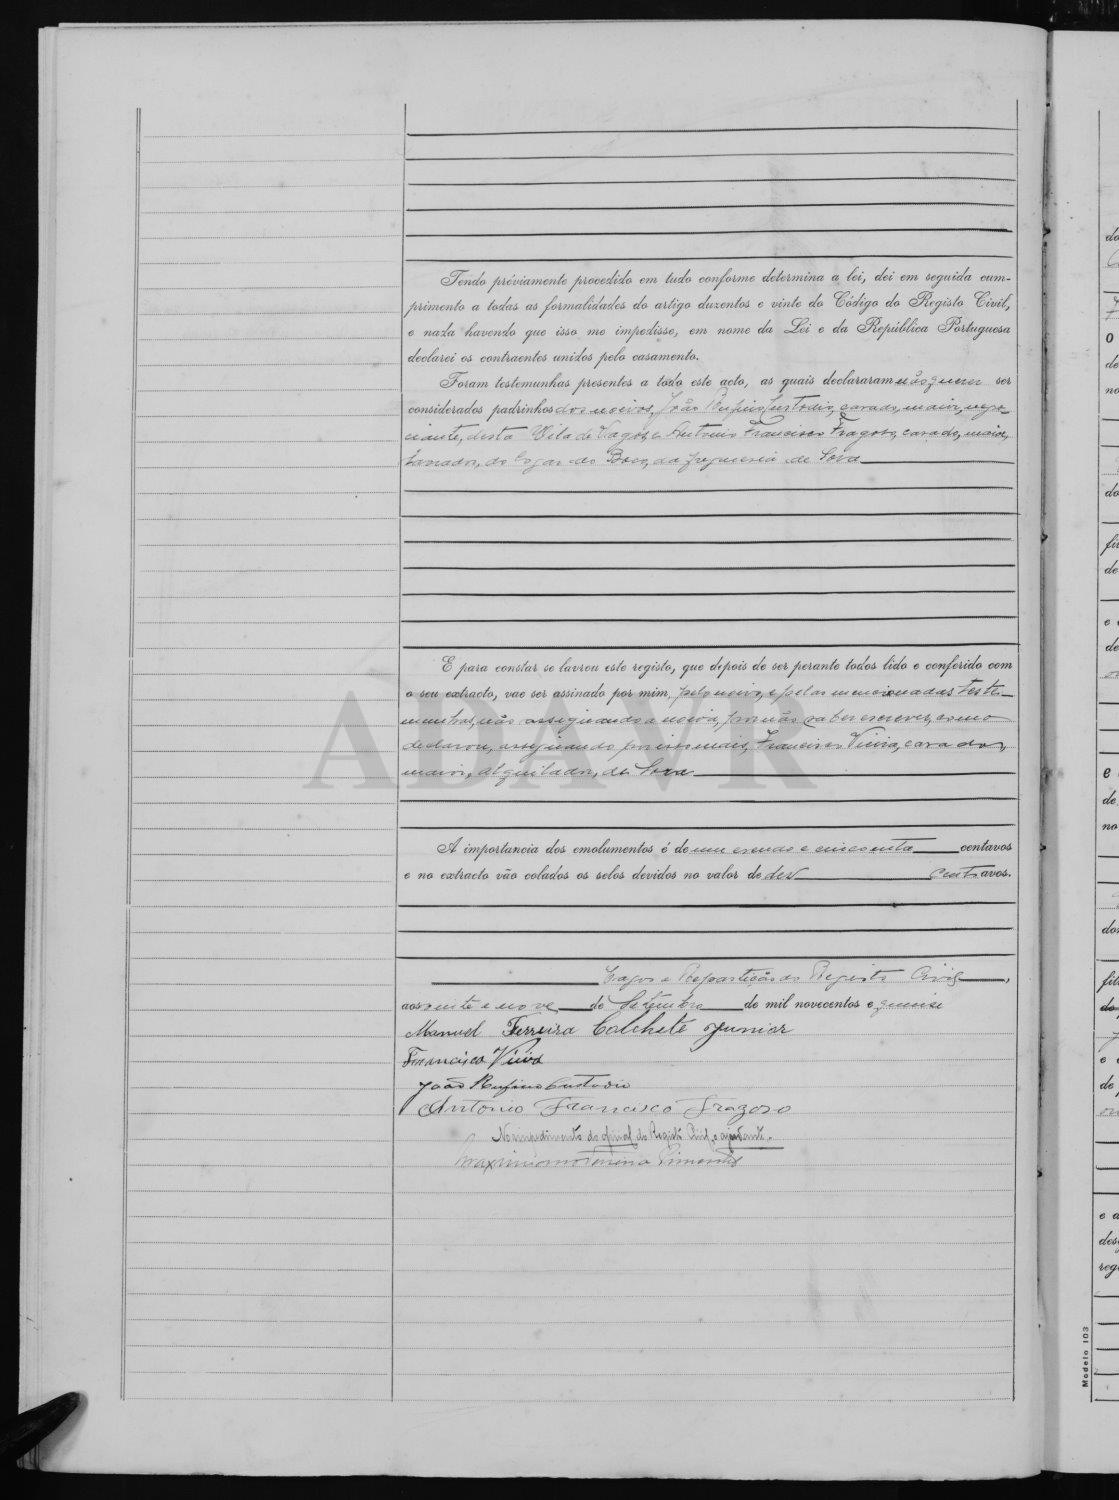 Tendo préviamente procedido em tudo conforme determina a lei, dei em seguida cum-
primento a todas as formalidades do artigo duzentos e vinte do Código do Registo Civil,
e nada havendo que isso me impedisse, em nome da Lei e da República Portuguesa
declarei os contraentes unidos pelo casamento.
Foram testemunhas presentes a todo este acto, as quais declararam não querer ser
considerados padrinhos dos noivos, João Rufino Custodio, casado, maior, nego-
ciante, desta Vila de Vagos, e Antonio Francisco Fragoso, casado, maior,
do logar do Boco, da freguesia de Soza
E para constar se lavrou este registo, que depois de ser perante todos lido e conferido com
o seu extracto, vae ser assinado por mim, pelo noivo, e pelas mencionadas teste-
munhas, não assignando a noiva, por não saber escrever, como
declarou, assignando por isso mais, Francisco Vieira, casado,
maior, alquilador, de Soza
ADAVR
A importancia dos emolumentos é de um escudo e cincoenta centavos
e no extracto vão colados os selos devidos no valor de dez centavos.
Vagos e Repartição do Registo Civil,
aos vinte e nove de Setembro de mil novecentos e quinse
Manuel Ferreira Calchete Junior
Francisco Vieira
João Rufino Custodio
Antonio Francisco Fragoso
No impedimento do oficial do Registo Civil, o ajudante.
Pimentel
do
de
no
do
de
e
de
e
de
no
do
e a
des
reg
Modelo 103